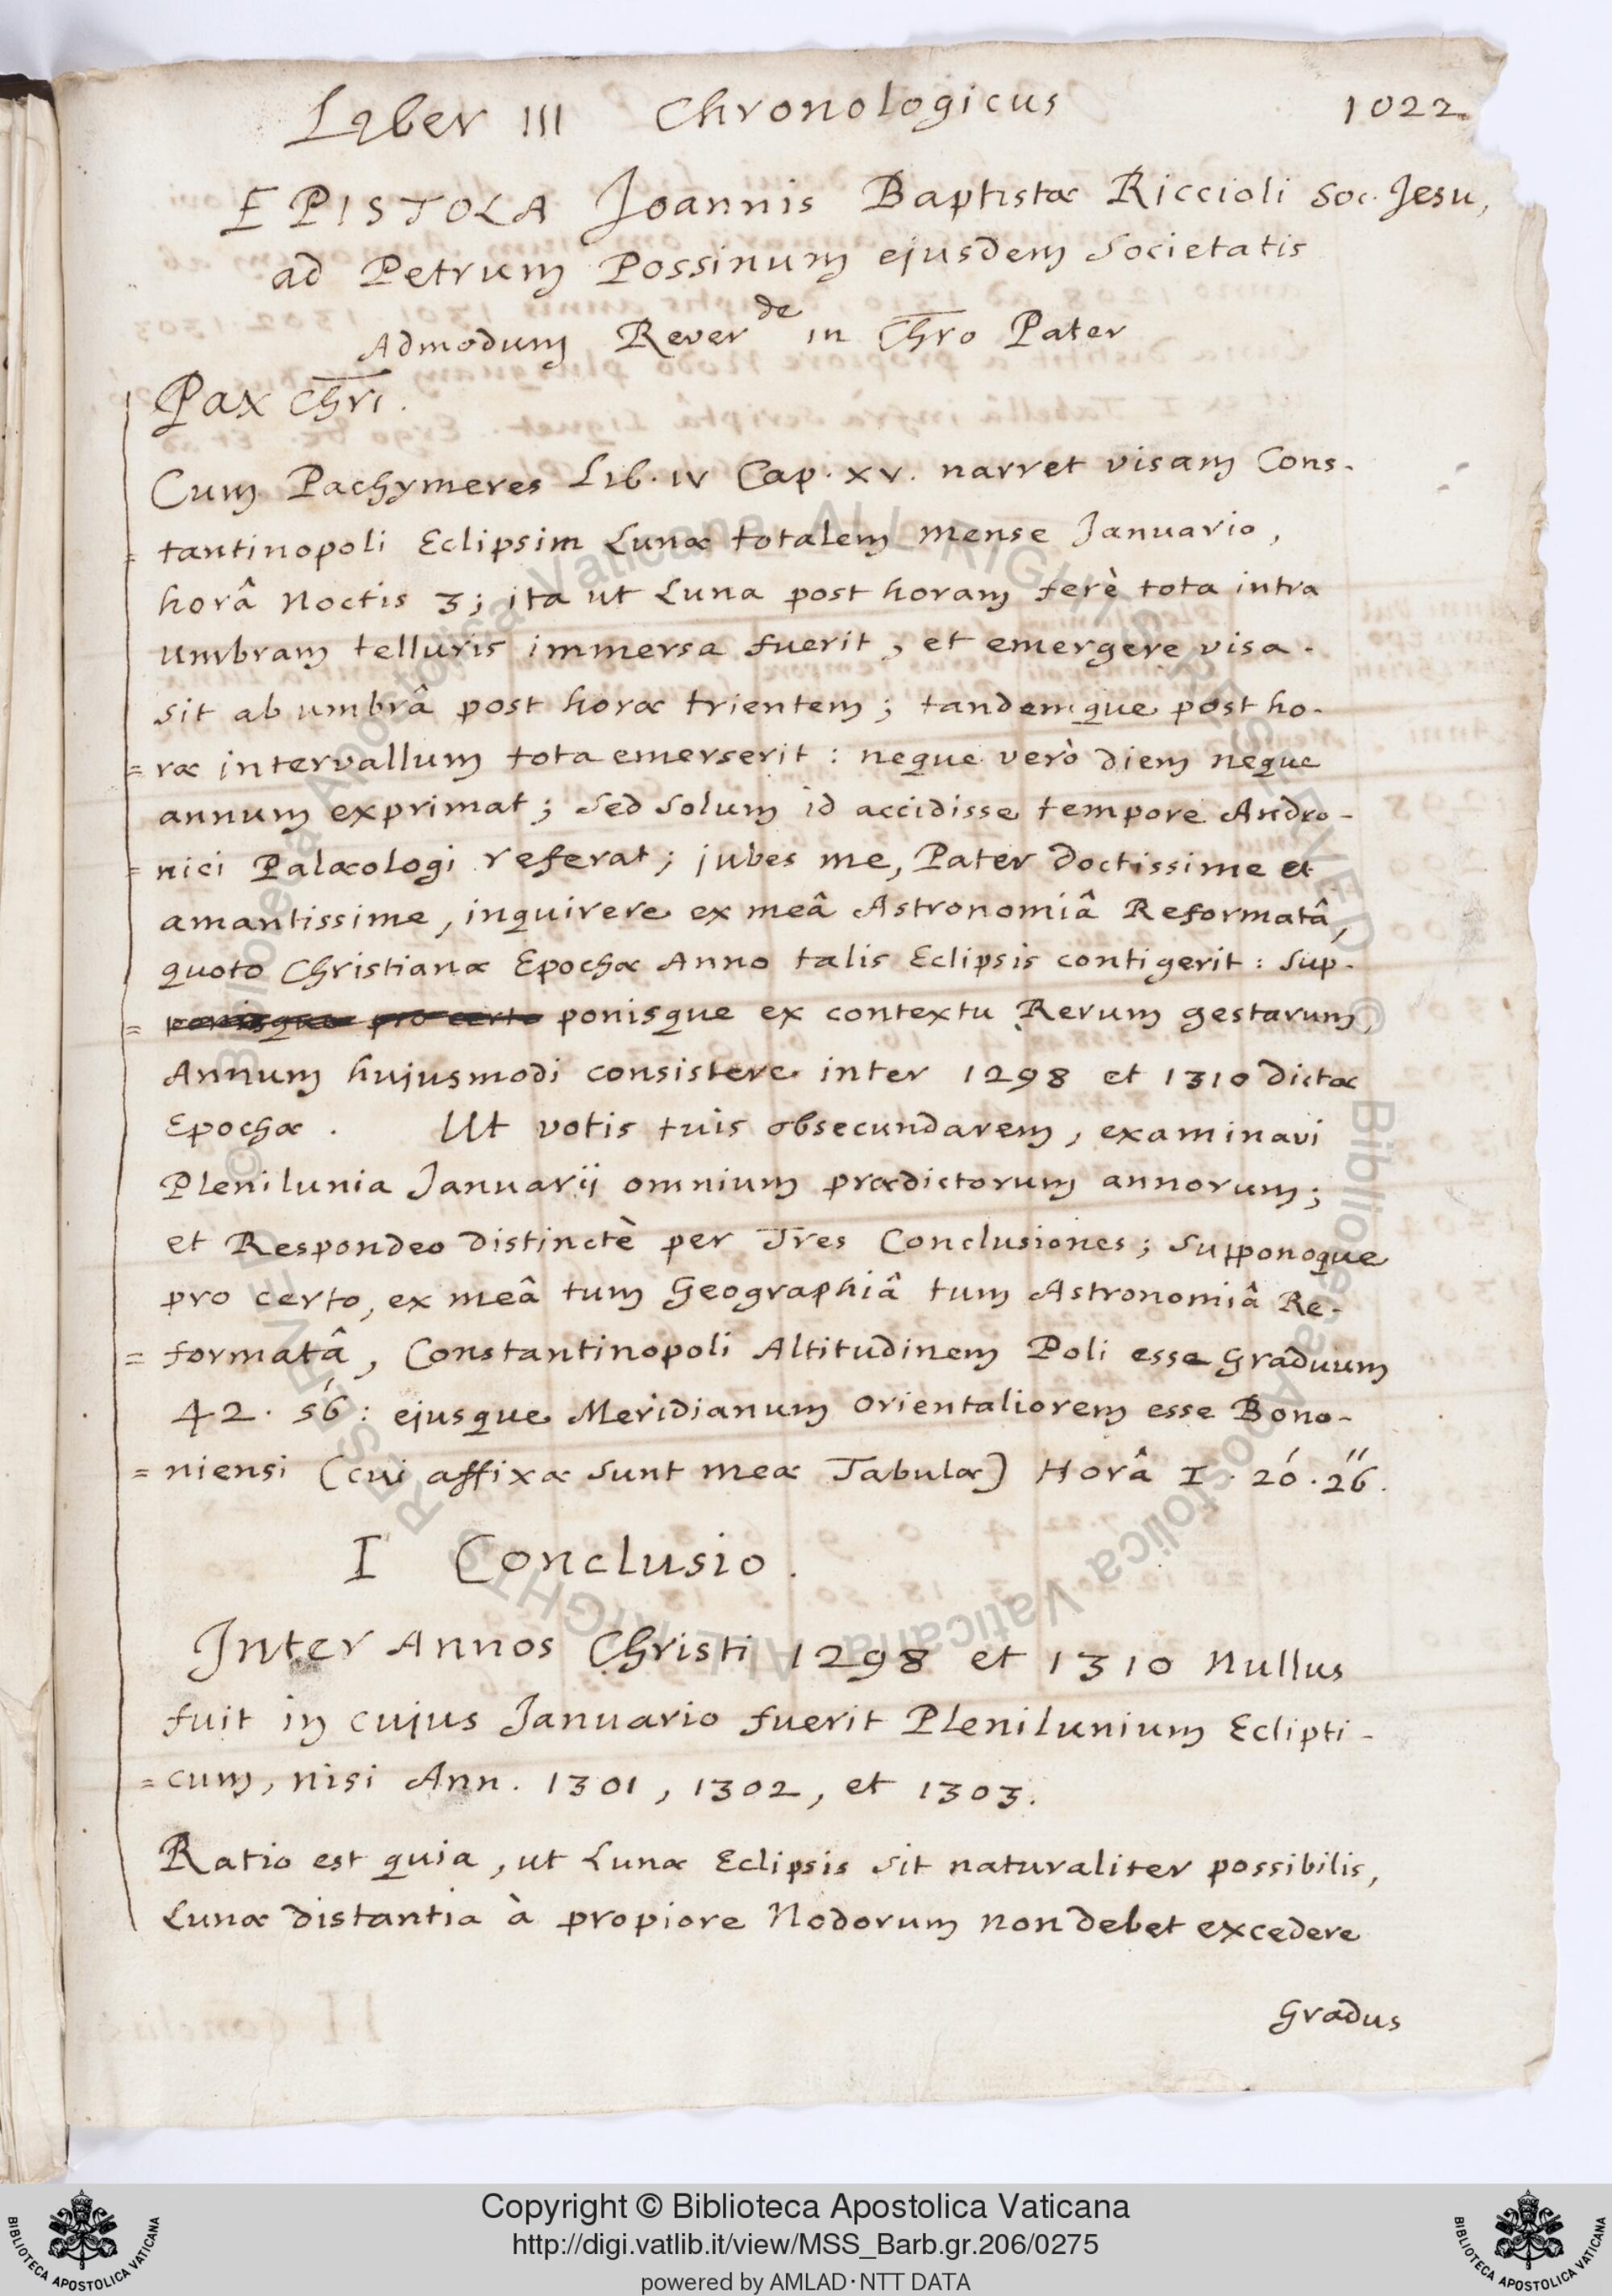 Liber III Chronologicus 1022
EPISTOLA Joannis Baptistæ Riccioli Soc. Jesu,
ad Petrum Possinum ejusdem Societatis
Admodum Rever de in Chro Pater
Pax Chri.
Cum Pachymeres Lib. IV Cap. XV. narret visam Cons-
tantinopoli Eclipsim Lunæ totalem mense Januario,
horâ Noctis 3; ita ut Luna post horam ferè tota intra
umbram telluris immersa fuerit, et emergere visa
sit ab umbrâ post horæ trientem; tandemque post ho-
=ræ intervallum tota emerserit: neque verò diem neque
annum exprimat; sed solum id accidisse tempore Andro-
=nici Palæologi referat; jubes me, Pater doctissime et
amantissime, inquirere ex meâ Astronomiâ Reformatâ,
quoto Christianæ Epochæ Anno talis Eclipsis contigerit: sup-
= ponisque pro certo ponisque ex contextu Rerum gestarum,
Annum hujusmodi consistere inter 1298 et 1310 dictæ
Epochæ. Ut votis tuis obsecundarem, examinavi
Plenilunia Januarij omnium prædictorum annorum;
et Respondeo distinctè per Tres Conclusiones; supponoque
pro certo, ex meâ tum Geographiâ tum Astronomiâ Re-
= formatâ, Constantinopoli Altitudinem Poli esse Graduum
42. 56́: ejusque Meridianum Orientaliorem esse Bono-
= niensi (cui affixæ sunt meæ Tabulæ) Horâ I. 20́. 26̋.
I Conclusio.
Inter Annos Christi 1298 et 1310 Nullus
fuit in cujus Januario fuerit Plenilunium Eclipti-
=cum, nisi Ann. 1301, 1302, et 1303.
Ratio est quia, ut Lunæ Eclipsis sit naturaliter possibilis,
Lunæ distantia à propiore Nodorum non debet excedere
Gradus
Copyright © Biblioteca Apostolica Vaticana
http://digi.vatlib.it/view/MSS_Barb.gr.206/0275
powered by AMLAD·NTT DATA
BIBLIOTECA APOSTOLICA VATICANA
BIBLIOTECA APOSTOLICA VATICANA
© Biblioteca Apostolica Vaticana ALL RIGHTS RESERVED
© Biblioteca Apostolica Vaticana ALL RIGHTS RESERVED